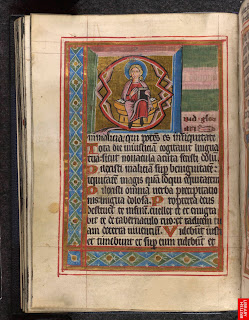 Q uid glori
aris
in malicia: qui potēs es in iniquitate
Tota die iniusticiā cogitauit lingua
tua: sicut nouacula acuta fecisti dolū.
Dilexisti maliciā sup̄ benignitatē:
iniquitatē magis quā loqui equitatem
Dilexisti omnia uerba precipitatio
nis lingua dolosa. Propterea deus
destruet te in finē: euellet te et emigra
bit te de tabernaculo tuo: et radicem tu
am de terra uiuentiū. Videbūt iusti
et timebunt et sup eum ridebūt et